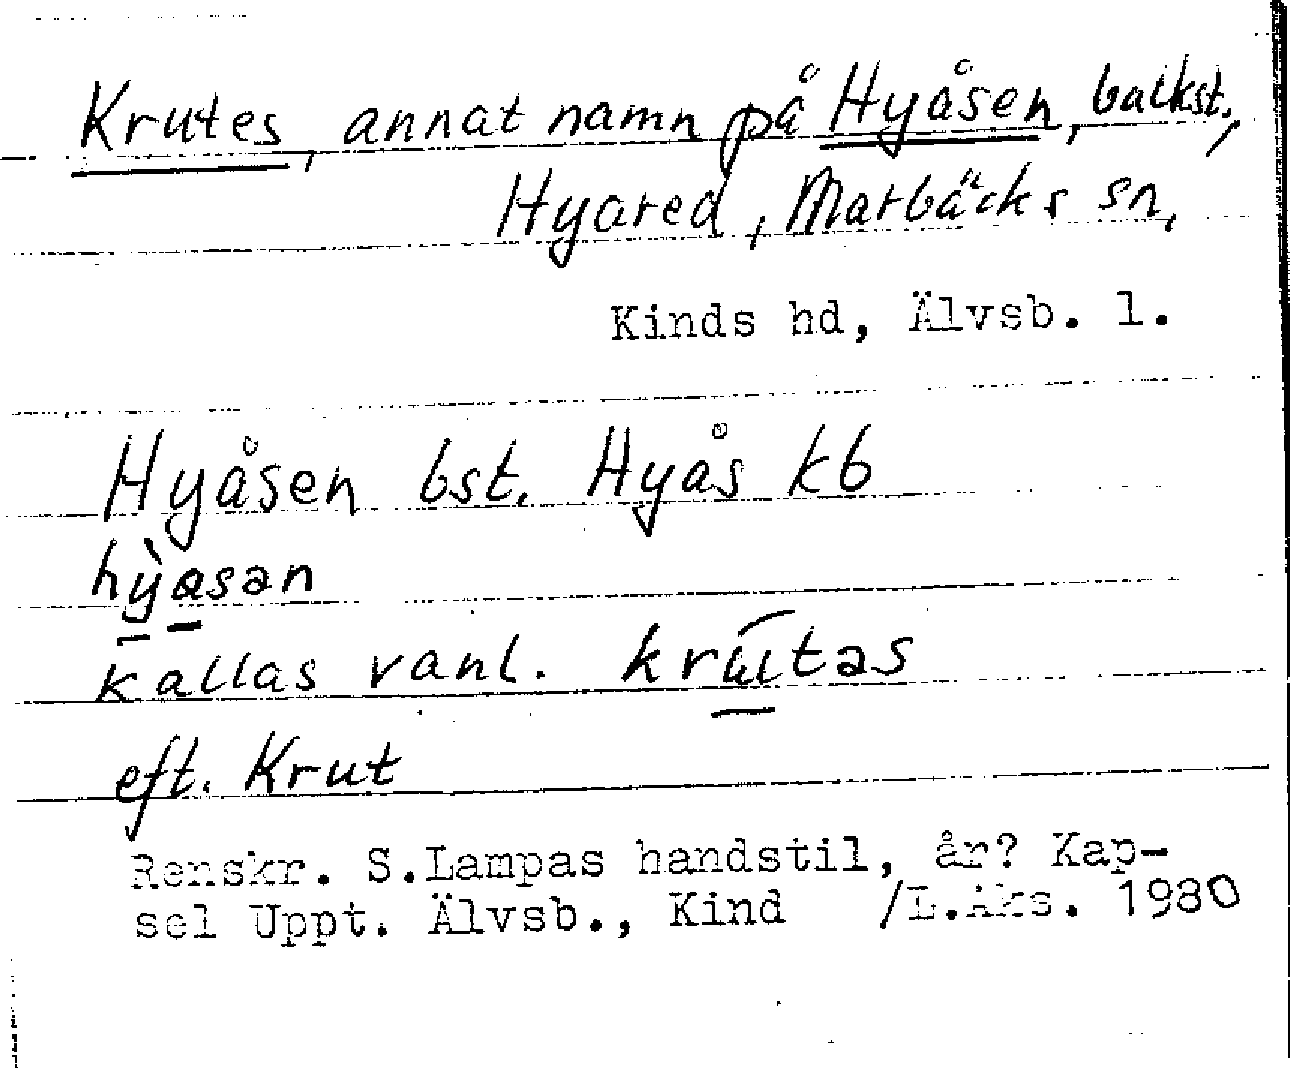 Krutes, annat namn på Hyåsen, backst.,
Hyared, Marbäcks sn,
Kinds hd, Älvsb. l.
Hyåsen bst. Hyås kb
hỳasan
kallas vanl. krutas
eft. Krut
Renskr. S.Lampas handstil, år? Kap-
sel Uppt. Älvsb., Kind /L.Aks. 1980